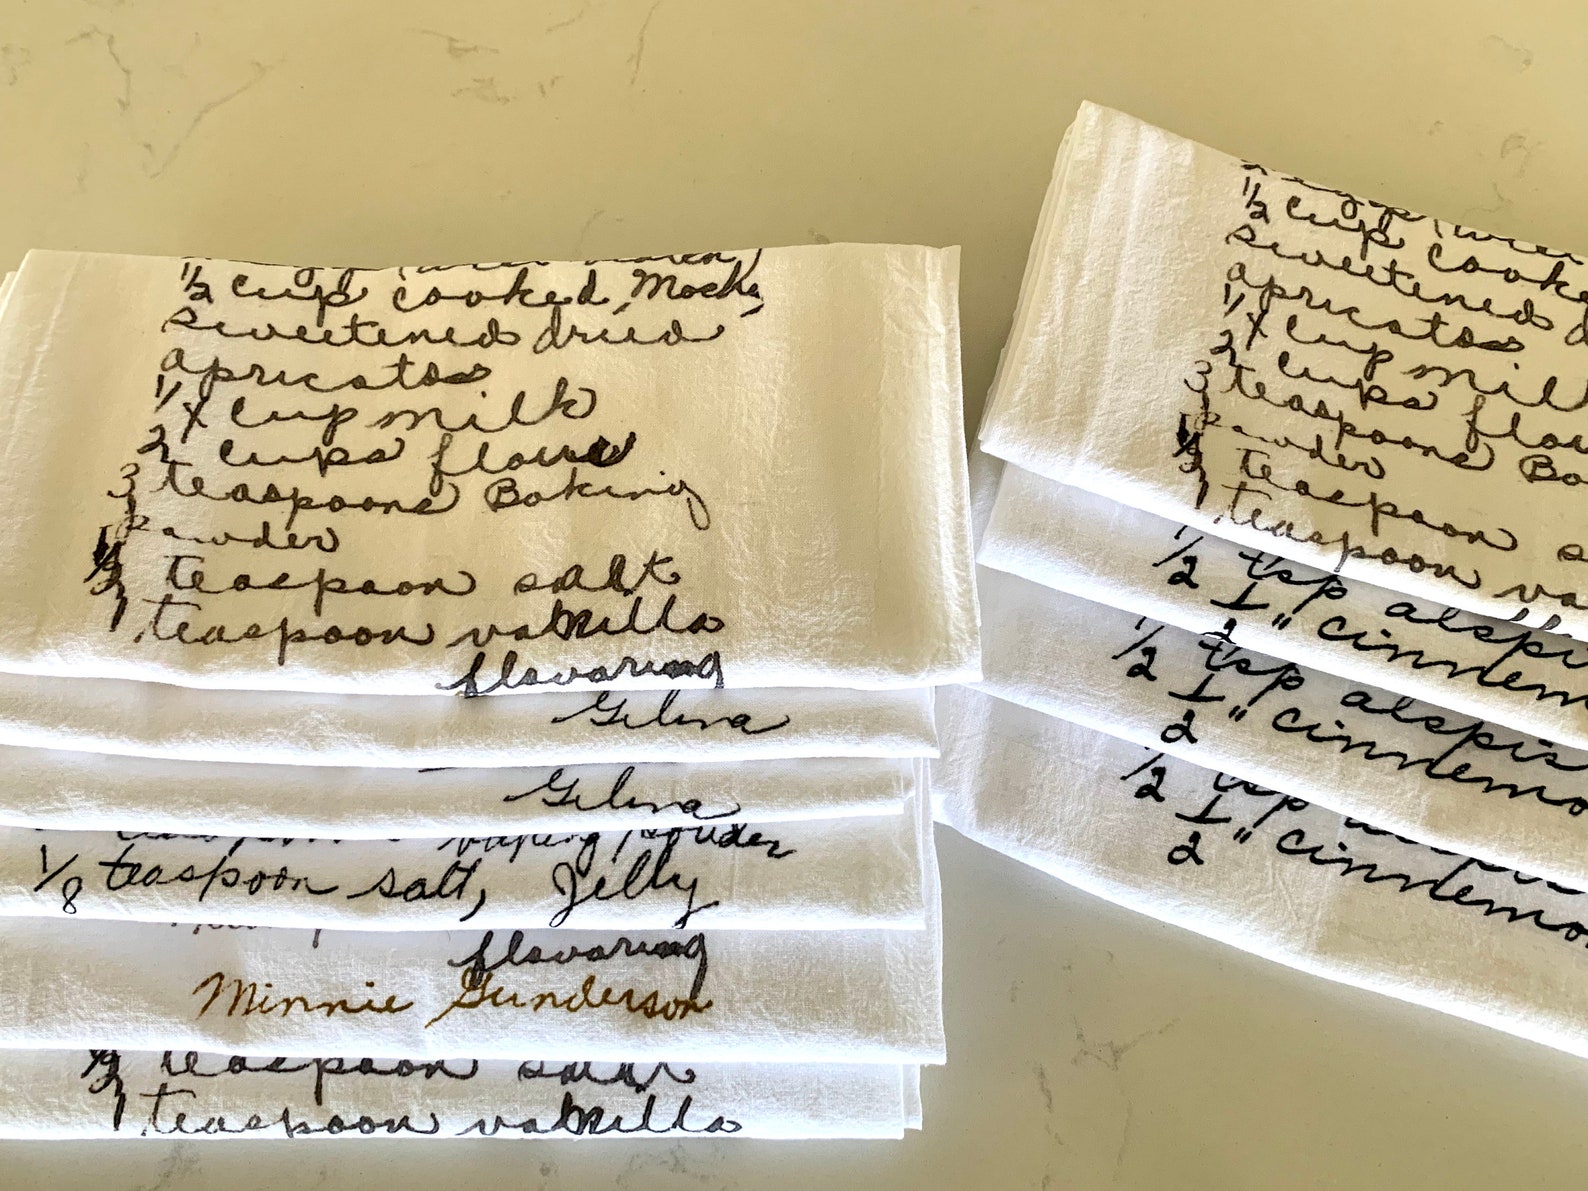 1/2 cup cooked, Mocha,
sweetened dried
apricots
1/4 cup milk
2 cups flour
3 teaspoons Baking
Powder
1/2 teaspoon salt
1 teaspoon vanilla
flavoring
Gelina
Gelina
Powder
1/8 teaspoon salt, Jelly
flavoring
Minnie Gunderson
1/2 teaspoon salt
1 teaspoon vanilla
1/2 cup cooke
sweetened d
apricots
1/4 cup mil
2 cups flou
3 teaspoons Ba
Powder
1/2 teaspoon s
1 teaspoon va
1/2 tsp alspi
1/2 " cinnem
1/2 tsp alspis
1/2 " cinnemo
1/2 tsp
1/2 " cinnemo